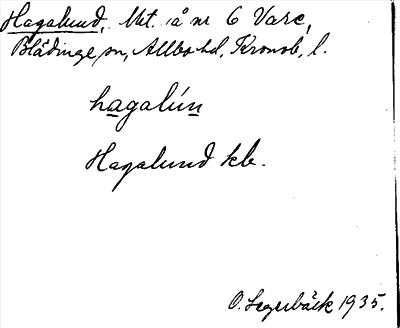 Hagalund, Met. i å nr 6 Vare,
Blädinge sn, Allbo hd, Kronob. l.
hagalún
Hagalund kb.
O. Segerbäck 1935.